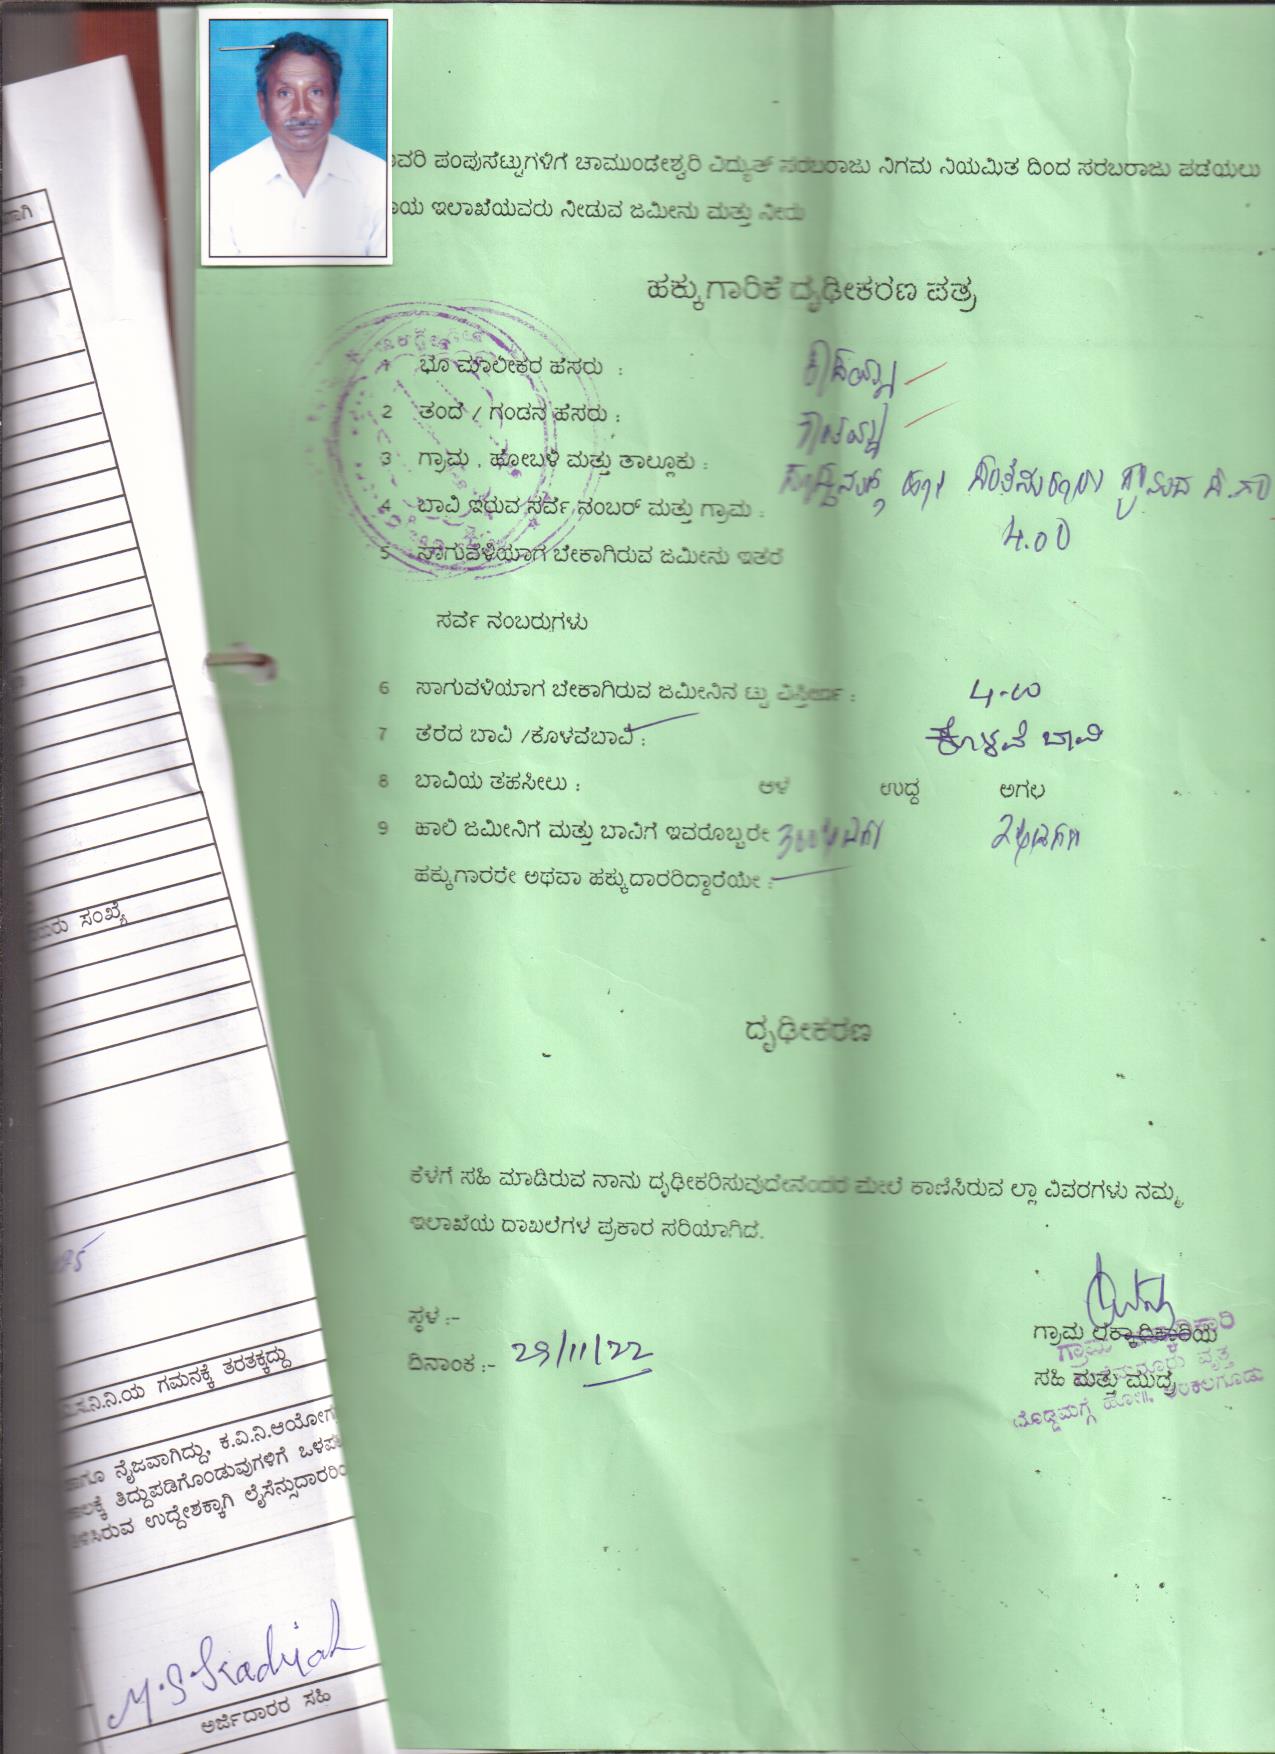 ವರಿ ಪಂಪುಸೆಟ್ಟುಗಳಿಗೆ ಚಾಮುಂಡೇಶ್ವರಿ ವಿದ್ಯುತ್ ಸರಬರಾಜು ನಿಗಮ ನಿಯಮಿತ ದಿಂದ ಸರಬರಾಜು ಪಡೆಯಲು
ಾಯ ಇಲಾಖೆಯವರು ನೀಡುವ ಜಮೀನು ಮತ್ತು ನೀರು
ಹಕ್ಕುಗಾರಿಕೆ ದೃಢೀಕರಣ ಪತ್ರ
1 ಭೂ ಮಾಲೀಕರ ಹೆಸರು :
2 ತಂದೆ / ಗಂಡನ ಹೆಸರು :
3 ಗ್ರಾಮ , ಹೋಬಳಿ ಮತ್ತು ತಾಲ್ಲೂಕು :
4 ಬಾವಿ ಇರುವ ಸರ್ವೆ ನಂಬರ್ ಮತ್ತು ಗ್ರಾಮ :
4.00
5 ಸಾಗುವಳಿಯಾಗ ಬೇಕಾಗಿರುವ ಜಮೀನು ಇತರೆ
ಸರ್ವೆ ನಂಬರುಗಳು
6 ಸಾಗುವಳಿಯಾಗ ಬೇಕಾಗಿರುವ ಜಮೀನಿನ ಟ್ಟು ವಿಸ್ತೀರ್ಣ : 4-00
7 ತೆರೆದ ಬಾವಿ /ಕೊಳವೆಬಾವಿ : ಕೊಳವೆ ಬಾವಿ
8 ಬಾವಿಯ ತಹಸೀಲು : ಆಳ ಉದ್ದ ಅಗಲ
9 ಹಾಲಿ ಜಮೀನಿಗೆ ಮತ್ತು ಬಾವಿಗೆ ಇವರೊಬ್ಬರೇ
ಹಕ್ಕುಗಾರರೇ ಅಥವಾ ಹಕ್ಕುದಾರರಿದ್ದಾರೆಯೇ :
ದೃಢೀಕರಣ
ಕೆಳಗೆ ಸಹಿ ಮಾಡಿರುವ ನಾನು ದೃಢೀಕರಿಸುವುದೇನೆಂದರೆ ಮೇಲೆ ಕಾಣಿಸಿರುವ ಲ್ಲಾ ವಿವರಗಳು ನಮ್ಮ
ಇಲಾಖೆಯ ದಾಖಲೆಗಳ ಪ್ರಕಾರ ಸರಿಯಾಗಿದೆ.
ಸ್ಥಳ :-
ದಿನಾಂಕ :- 29/11/22
ಗ್ರಾಮ ಲೆಕ್ಕಾಧಿಕಾರಿಯ
ಸಹಿ ಮತ್ತು ಮುದ್ರೆ
ದೊಡ್ಡಮಗ್ಗೆ ಹೋ||, ಅರಕಲಗೂಡು
ವಾಗಿ
ಸಂಖ್ಯೆ
ನಿ.ನಿ.ಯ ಗಮನಕ್ಕೆ ತರತಕ್ಕದ್ದು
ಹಾಗೂ ನೈಜವಾಗಿದ್ದು, ಕ.ವಿ.ನಿ.ಆಯೋಗ
ಕಾಲಕ್ಕೆ ತಿದ್ದುಪಡಿಗೊಂಡುವುಗಳಿಗೆ ಒಳಪ
ಳಿಸಿರುವ ಉದ್ದೇಶಕ್ಕಾಗಿ ಲೈಸೆನ್ಸುದಾರರಿಂ
ಅರ್ಜಿದಾರರ ಸಹಿ